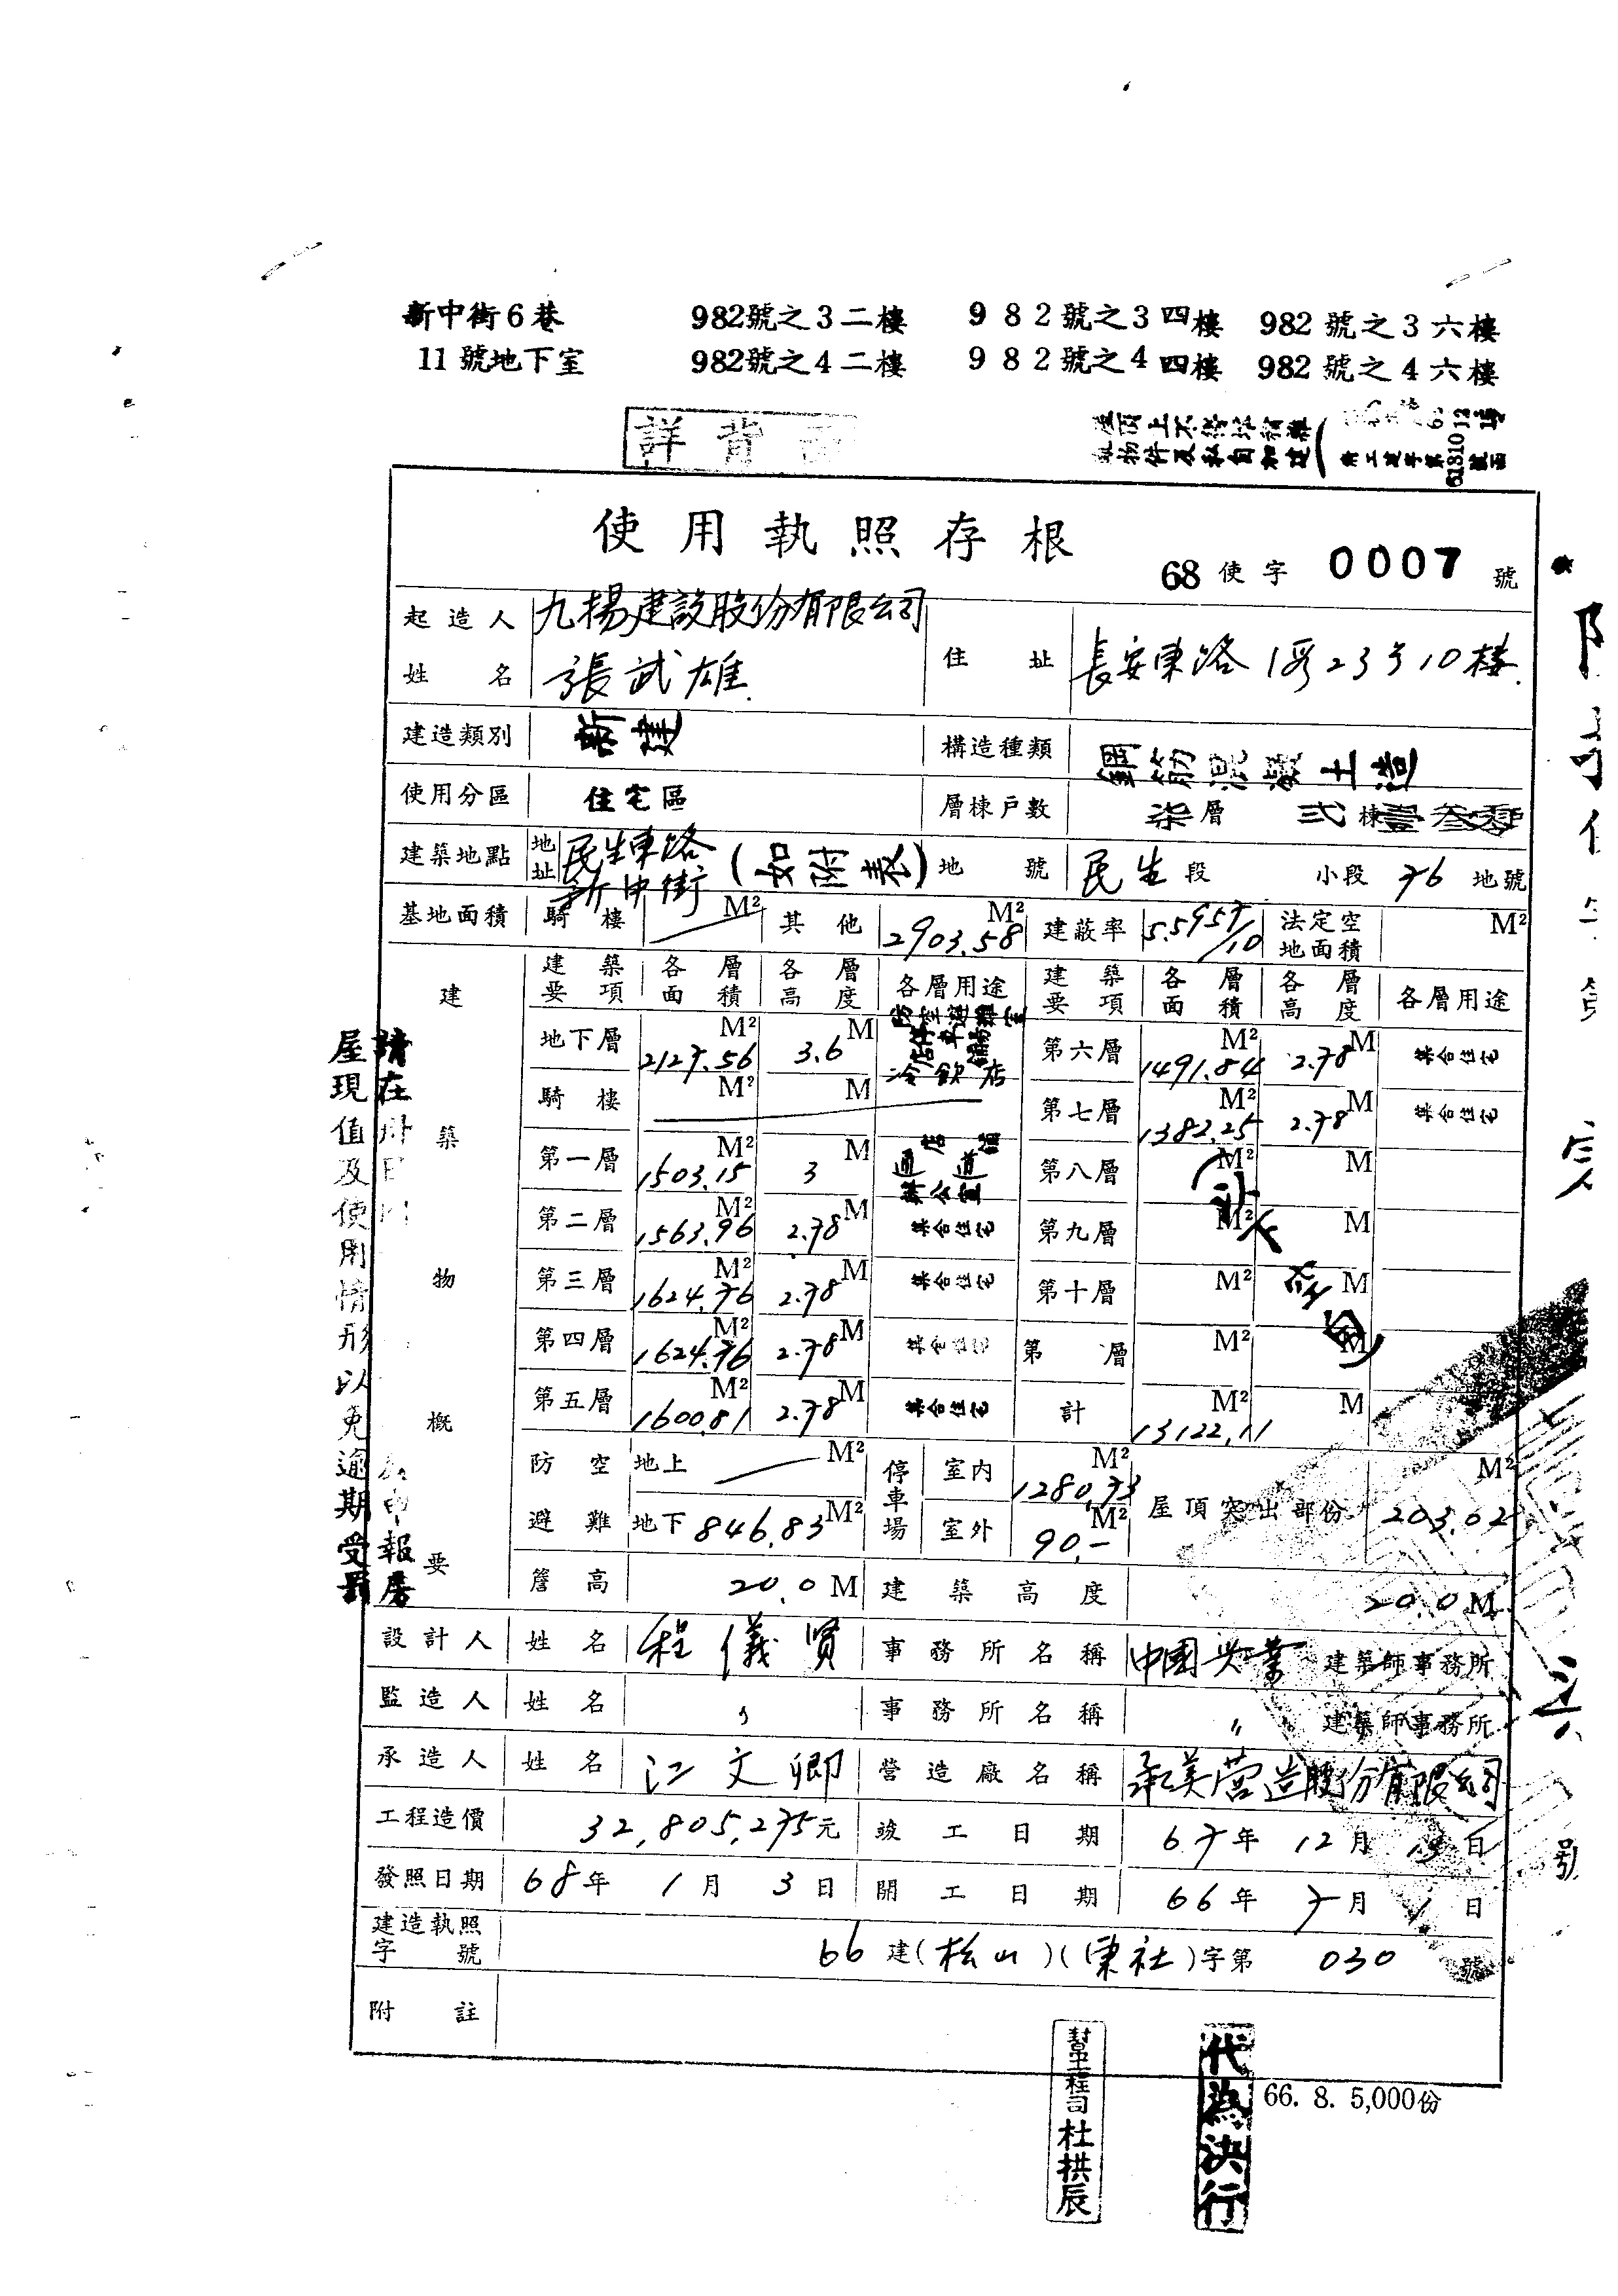 新中街6巷 982號之3二樓 982號之3四樓 982號之3六樓
11號地下室 982號之4二樓 982號之4四樓 982號之4六樓
詳背
使用執照存根
68使字 0007 號
起造人姓名 九揚建設股份有限公司
張武雄
住址 長安東路1段23号10楼
建造類別 新建 構造種類 鋼筋混凝土造
使用分區 住宅區 層棟戶數 柒層 弍棟壹叁零
建築地點 地址 民生東路 新中街 (如附表) 地號 民生段 小段 76 地號
基地面積 騎樓 M² 其他 2903.58 M² 建蔽率 5.5957/10 法定空地面積 M²
建築物概要
建築要項 各層面積 各層高度 各層用途 建築要項 各層面積 各層高度 各層用途
地下層 2127.56 M² 3.6 M 防空避難室 停車場 店舖 冷飲店 第六層 1491.84 M² 2.78 M 集合住宅
騎樓 M² M 第七層 1382.25 M² 2.78 M 集合住宅
第一層 1503.15 M² 3 M 店舖 辦公室 第八層 M² M
第二層 1563.96 M² 2.78 M 集合住宅 第九層 M² M
第三層 1624.76 M² 2.78 M 集合住宅 第十層 M² M
第四層 1624.76 M² 2.78 M 集合住宅 第 層 M² M
第五層 1600.81 M² 2.78 M 集合住宅 計 13122.11 M² M
防空避難 地上 M² 停車場 室內 1280.73 M² 屋頂突出部份 203.02 M²
地下 846.83 M² 室外 90.- M²
簷高 20.0 M 建築高度 20.0 M
設計人 姓名 程儀賢 事務所名稱 中國興業 建築師事務所
監造人 姓名 〃 事務所名稱 〃 建築師事務所
承造人 姓名 江文卿 營造廠名稱 承美营造股份有限公司
工程造價 32,805,275元 竣工日期 67年 12月 13日
發照日期 68年 1月 3日 開工日期 66年 7月 1日
建造執照字號 66建(松山)(東社)字第 030 號
附註
屋現值及使用情形以免逾期受罰
66. 8. 5,000份
幫工程司 杜拱辰
代為決行